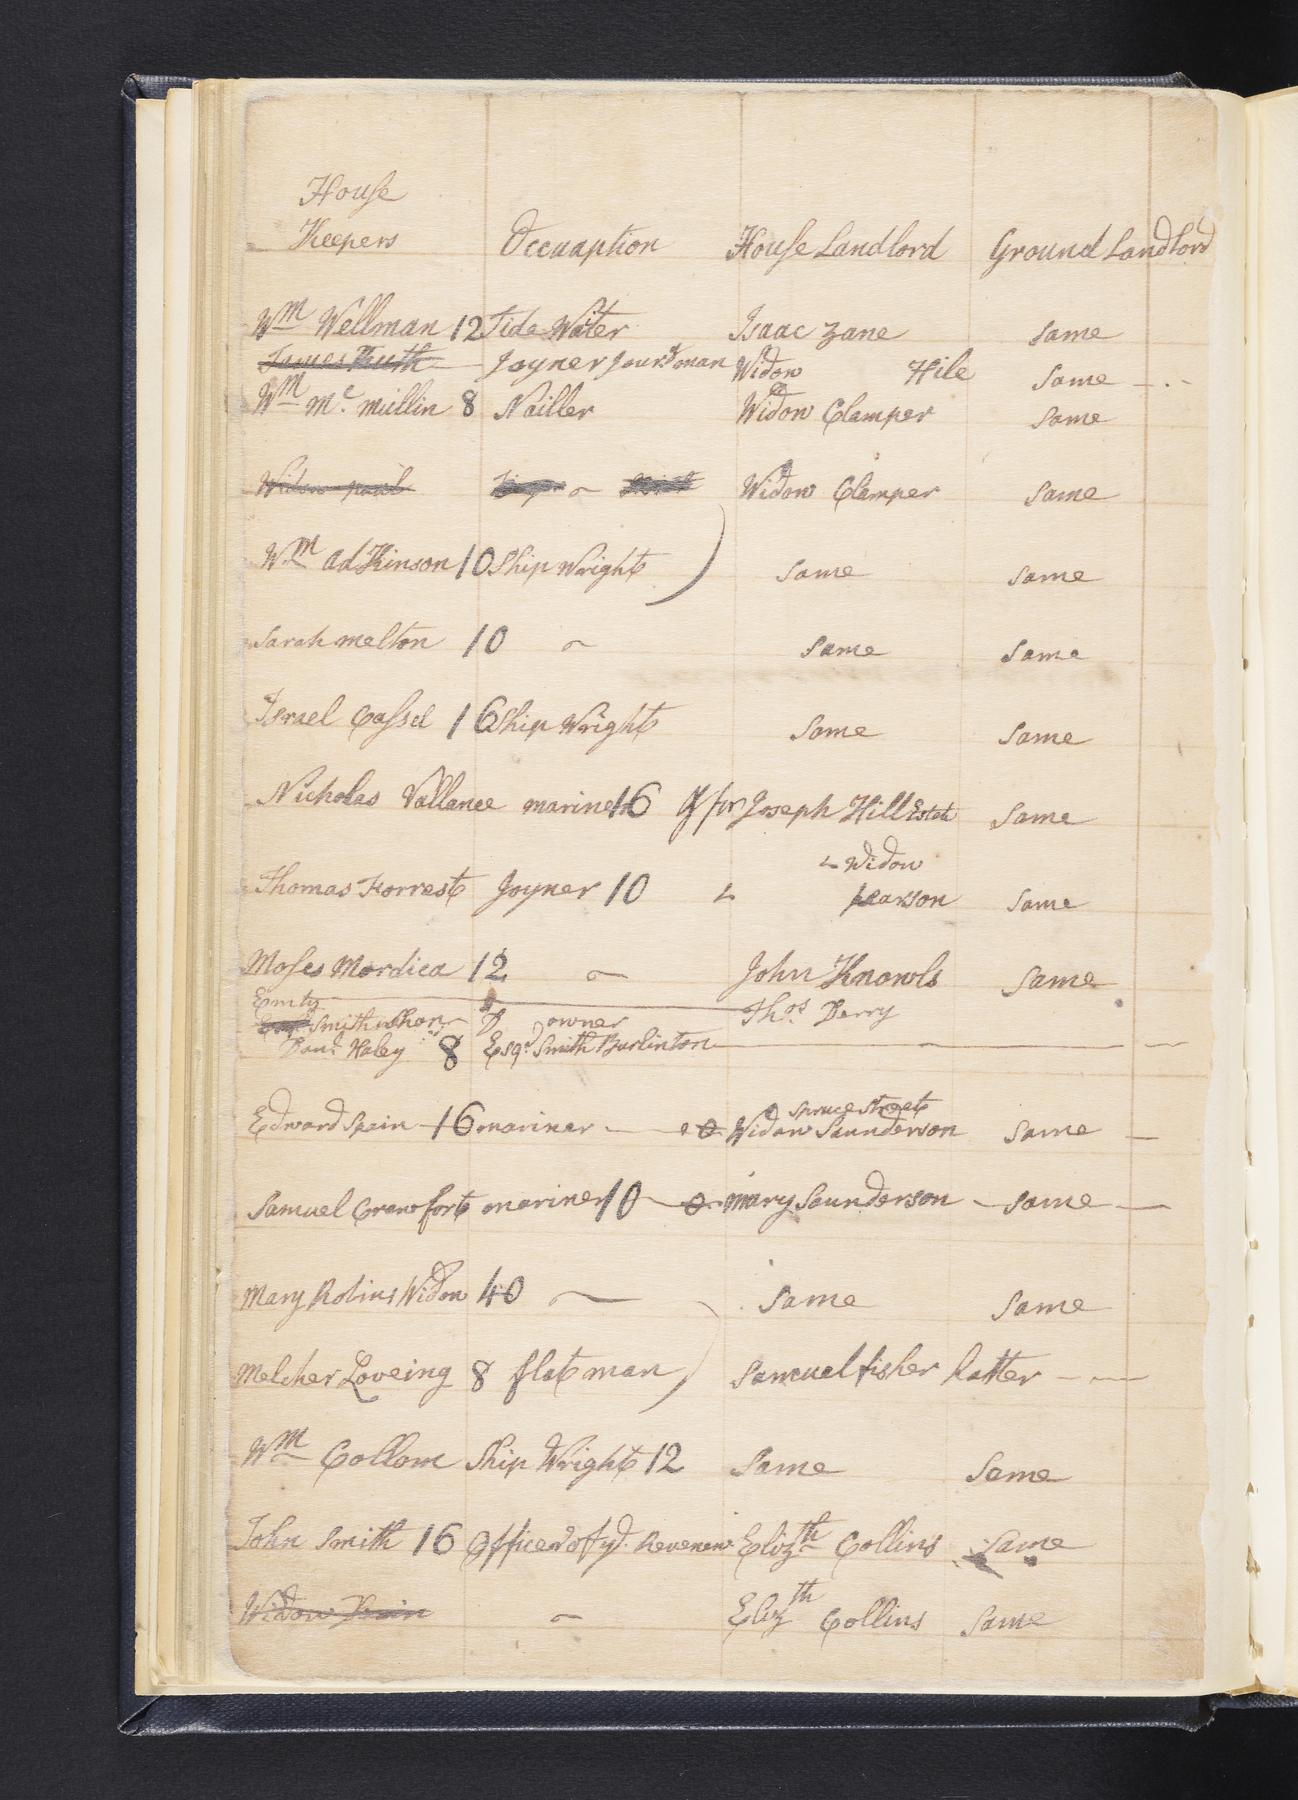 House
Keepers Occuaption House Landlord Ground Landlord
Wm Wellman 12 Tide Water Isaac Zane Same
James Ruth Joyner Jourdman Widow Hile Same
Wm Mc mullin 8 Nailler Widow Clamper Same
Widow paul Widow Clamper Same
Wm adKinson 10 Ship Wright Same Same
Sarah melton 10 Same Same
Israel Cassel 16 Ship Wright Same Same
Nicholas Vallance mariner 16 Joseph Hill Estate Same
Widow
Thomas Forrest Joyner 10 pearson Same
Moses Mordica 12 John Knowls Same
Emty Thos Berry
Smith whon owner
Danl Haley 8 Esqr Smith Burlinton
Spruce Street
Edward Spain 16 mariner Widow Saunderson Same
Samuel Crawfort mariner 10 mary Saunderson Same
Mary Robins Widow 40 Same Same
Melcher Loveing 8 flat man Samuel fisher hatter
Wm Collom Ship Wright 12 Same Same
John Smith 16 Officer of ye Revenew Elizth Collins Same
Widow Elizth Collins Same